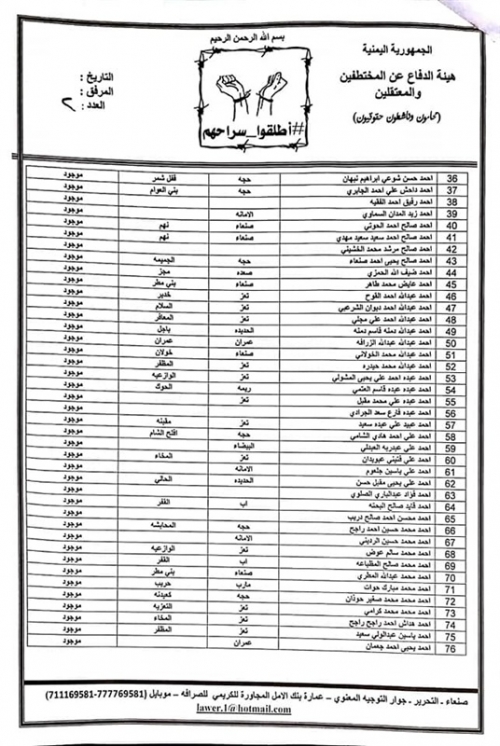 بسم الله الرحمن الرحيم
الجمهورية اليمنية
هيئة الدفاع عن المختطفين والمعتقلين
(محامون وناشطون حقوقيون)
التاريخ :
المرفق :
العدد : ٢
#أطلقوا_سراحهم
36 احمد حسن شوعي ابراهيم نبهان حجه قفل شمر موجود
37 احمد داحش علي احمد الجابري حجه بني العوام موجود
38 احمد رفيق احمد الفقيه موجود
39 احمد زيد المدان السماوي الامانه موجود
40 احمد صالح احمد الحوتي صنعاء نهم موجود
41 احمد صالح احمد سعيد سعيد مهدي صنعاء نهم موجود
42 احمد صالح مرشد محمد الخشيني موجود
43 احمد صالح يحيى احمد صنعاء حجه الجميمه موجود
44 احمد ضيف الله الحمزي صعده مجز موجود
45 احمد عايض محمد طاهر صنعاء بني مطر موجود
46 احمد عبدالله احمد القوح تعز خدير موجود
47 احمد عبدالله احمد ديوان الشرعبي تعز السلام موجود
48 احمد عبدالله احمد علي مجلي تعز المعافر موجود
49 احمد عبدالله دمنه قاسم دمنه الحديده باجل موجود
50 احمد عبدالله عبدالله الزرافه عمران عمران موجود
51 احمد عبدالله محمد الخولاني صنعاء خولان موجود
52 احمد عبدالله محمد حيدره تعز المظفر موجود
53 احمد عبده احمد علي يحيى المشولي تعز الوازعيه موجود
54 احمد عبده عبده قاسم العثمي ريمه الحوك موجود
55 احمد عبده علي محمد مقبل تعز موجود
56 احمد عبده فارع سعد الجرادي موجود
57 احمد عبيد علي عبده سعيد تعز مقبنه موجود
58 احمد علي احمد هادي الشامي حجه افلح الشام موجود
59 احمد علي عبدربه العبدلي البيضاء موجود
60 احمد علي فتيني عبويدان تعز المخاء موجود
61 احمد علي ياسين جلعوم الامانه موجود
62 احمد علي يحيى مقبل حسن الحديده الحالي موجود
63 احمد فؤاد عبدالباري الصلوي موجود
64 احمد قايد صالح البحنه اب القفر موجود
65 احمد محسن احمد صالح دريب موجود
66 احمد محمد حسين احمد راجح حجه المحابشه موجود
67 احمد محمد حسين الرديني الامانه موجود
68 احمد محمد سالم عوض تعز الوازعيه موجود
69 احمد محمد صالح المظباعه اب القفر موجود
70 احمد محمد عبدالله المطري صنعاء بني مطر موجود
71 احمد محمد مبارك حوات مارب حريب موجود
72 احمد محمد محمد صغير حوذان حجه كعيدنه موجود
73 احمد محمد محمد كرامي تعز التعزيه موجود
74 احمد هداش احمد راجح راجح تعز المخاء موجود
75 احمد ياسين عبدالولي سعيد تعز المظفر موجود
76 احمد يحيى احمد جعمان عمران موجود
صنعاء - التحرير - جوار التوجيه المعنوي - عمارة بنك الامل المجاورة للكريمي للصرافه - موبايل (777769581-711169581)
lawer.1@hotmail.com